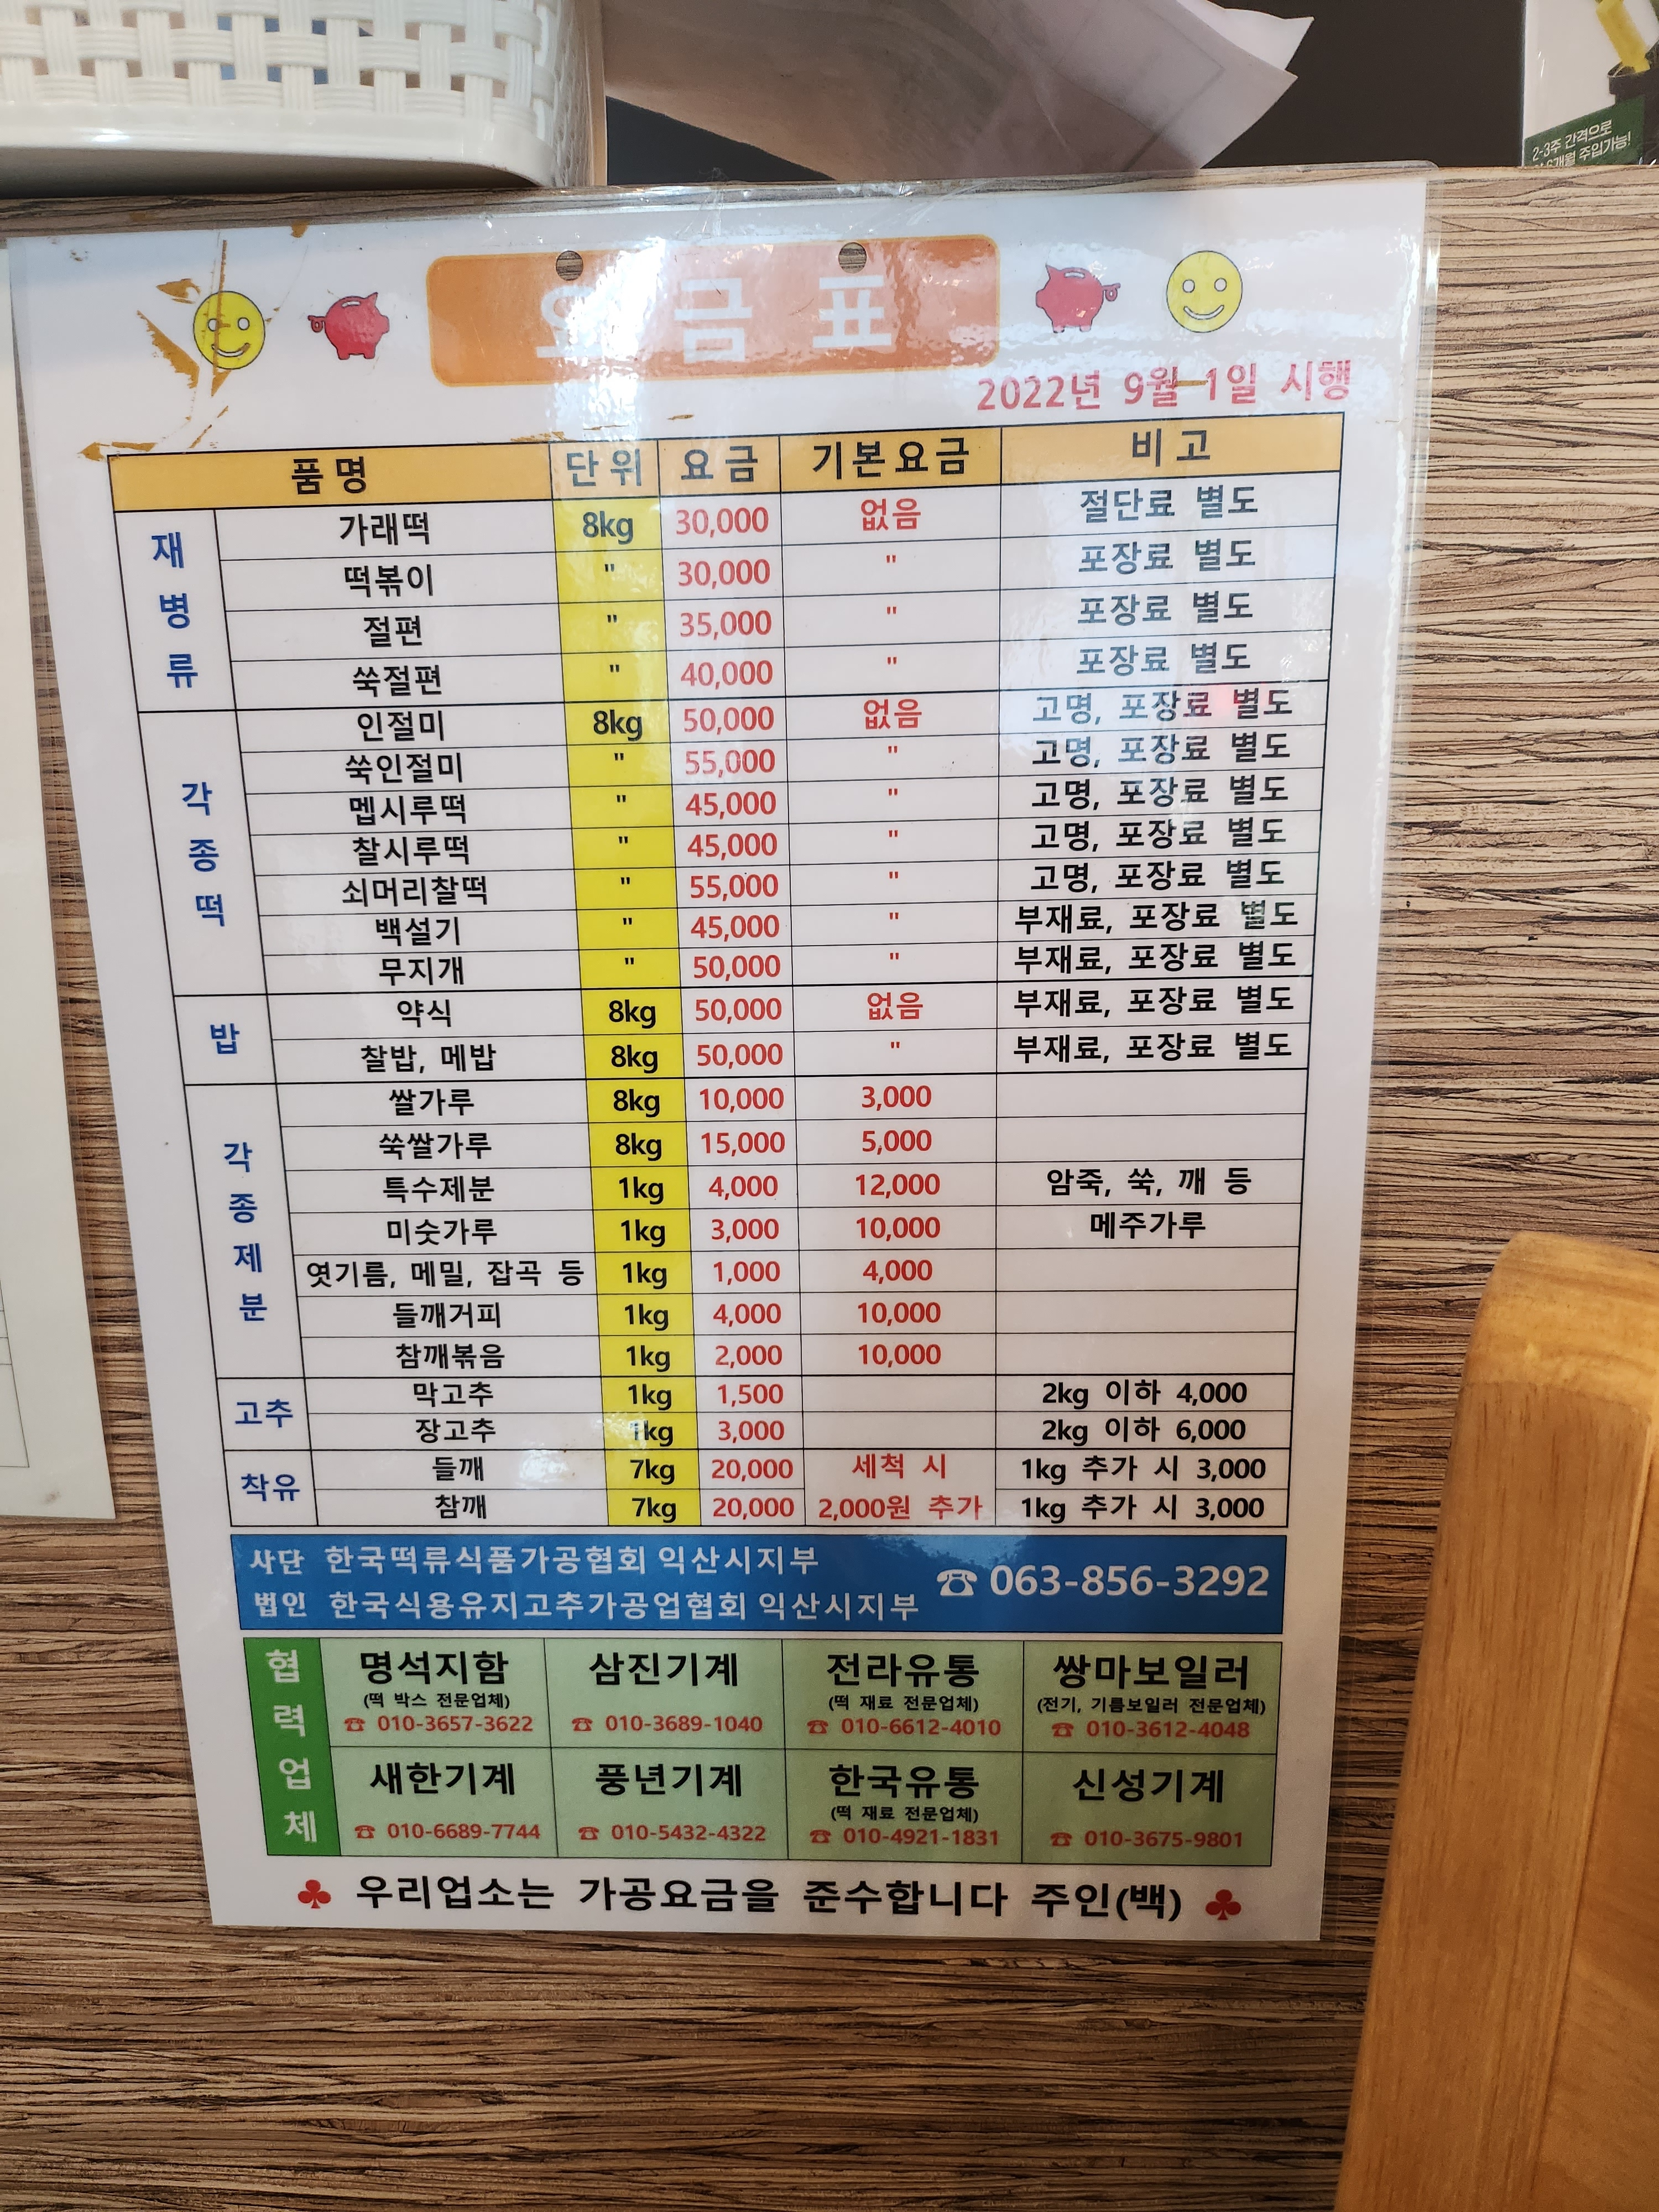 2-3주 간격으로
6개월 주입가능!
요 금 표
2022년 9월 1일 시행
품 명 단 위 요 금 기본요금 비 고
재병류
가래떡 8kg 30,000 없음 절단료 별도
떡볶이 " 30,000 " 포장료 별도
절편 " 35,000 " 포장료 별도
쑥절편 " 40,000 " 포장료 별도
각종떡
인절미 8kg 50,000 없음 고명, 포장료 별도
쑥인절미 " 55,000 " 고명, 포장료 별도
멥시루떡 " 45,000 " 고명, 포장료 별도
찰시루떡 " 45,000 " 고명, 포장료 별도
쇠머리찰떡 " 55,000 " 고명, 포장료 별도
백설기 " 45,000 " 부재료, 포장료 별도
무지개 " 50,000 " 부재료, 포장료 별도
밥
약식 8kg 50,000 없음 부재료, 포장료 별도
찰밥, 메밥 8kg 50,000 " 부재료, 포장료 별도
각종제분
쌀가루 8kg 10,000 3,000
쑥쌀가루 8kg 15,000 5,000
특수제분 1kg 4,000 12,000 암죽, 쑥, 깨 등
미숫가루 1kg 3,000 10,000 메주가루
엿기름, 메밀, 잡곡 등 1kg 1,000 4,000
들깨거피 1kg 4,000 10,000
참깨볶음 1kg 2,000 10,000
고추
막고추 1kg 1,500 2kg 이하 4,000
장고추 1kg 3,000 2kg 이하 6,000
착유
들깨 7kg 20,000 세척 시 1kg 추가 시 3,000
참깨 7kg 20,000 2,000원 추가 1kg 추가 시 3,000
사단 한국떡류식품가공협회 익산시지부
법인 한국식용유지고추가공업협회 익산시지부
☎ 063-856-3292
협력업체
명석지함 삼진기계 전라유통 쌍마보일러
(떡 박스 전문업체) (떡 재료 전문업체) (전기, 기름보일러 전문업체)
☎ 010-3657-3622 ☎ 010-3689-1040 ☎ 010-6612-4010 ☎ 010-3612-4048
새한기계 풍년기계 한국유통 신성기계
(떡 재료 전문업체)
☎ 010-6689-7744 ☎ 010-5432-4322 ☎ 010-4921-1831 ☎ 010-3675-9801
♣ 우리업소는 가공요금을 준수합니다 주인(백) ♣